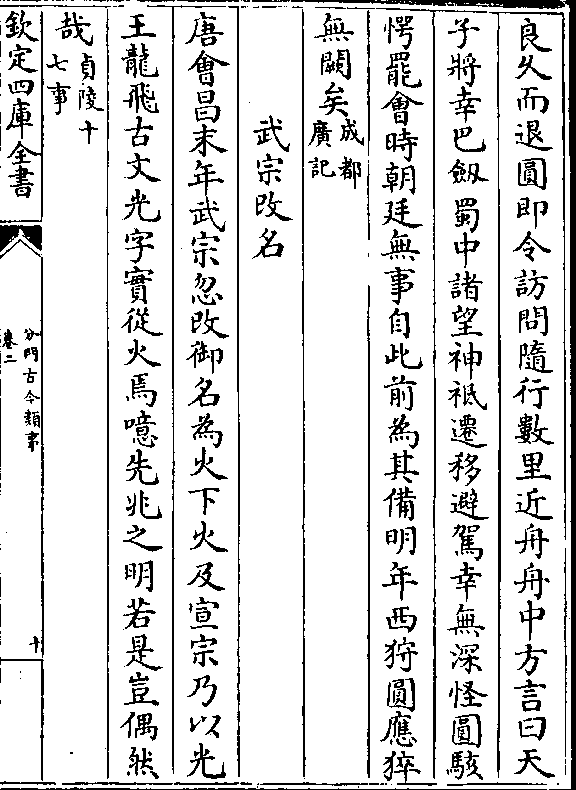 良久而退圓即令訪問隨行數里近舟舟中方言曰天
子將幸巴劔蜀中諸望神祗遷移避駕幸無深怪圓駭
愕罷會時朝廷無事自此前為其備明年西狩圓應猝
無闕矣成都廣記
武宗改名
唐會昌末年武宗忽改御名為火下火及宣宗乃以光
王龍飛古文光字實從火焉噫先兆之明若是豈偶然
哉貞陵十七事
欽定四庫全書
分門古今類事
卷二
十